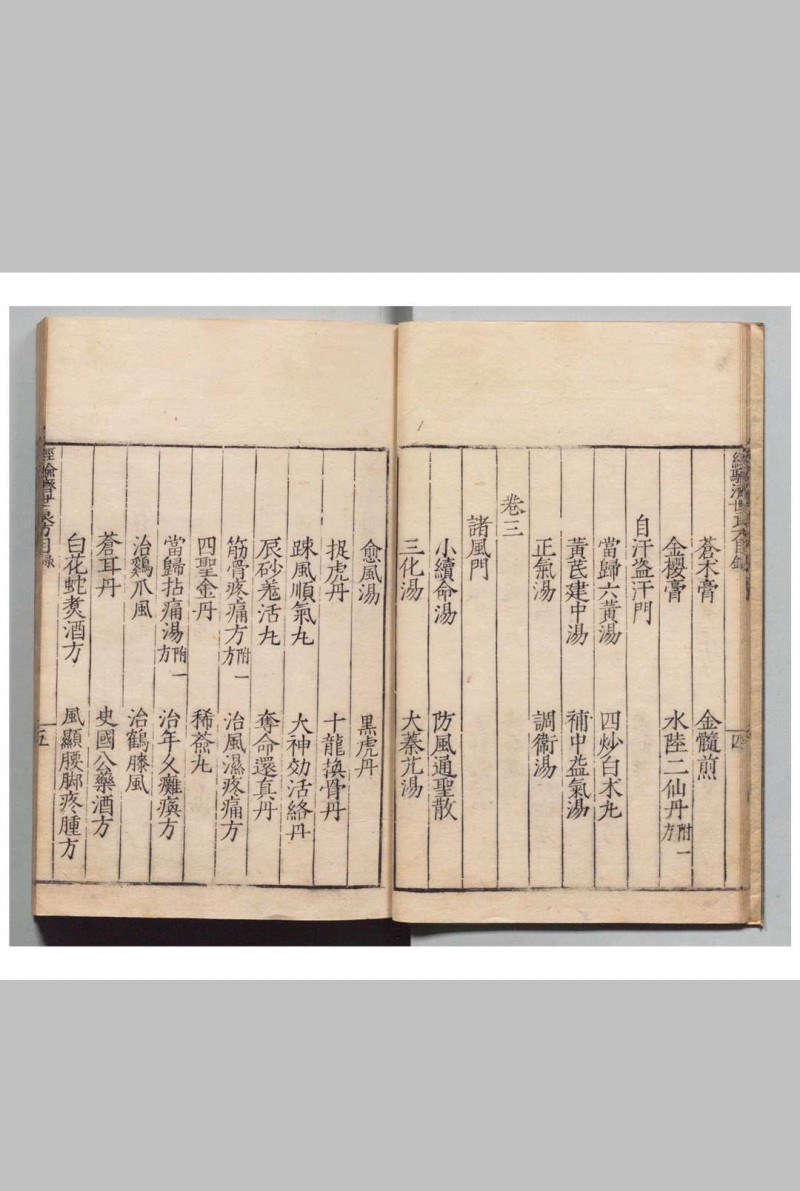 蒼朮膏 金髓煎
金櫻膏 水陸二仙丹附一方
自汗盜汗門
當歸六黃湯 四炒白朮丸
黃芪建中湯 補中益氣湯
正氣湯 調衞湯
卷三
諸風門
小續命湯 防風通聖散
三化湯 大秦艽湯
四
愈風湯 黑虎丹
捉虎丹 十龍換骨丹
疎風順氣丸 大神効活絡丹
辰砂羗活丸 奪命還真丹
筋骨疼痛方附一方 治風濕疼痛方
四聖金丹 稀薟丸
當歸拈痛湯附一方 治年久癱瘓方
治鷄爪風 治鶴膝風
蒼耳丹 史國公藥酒方
白花蛇煑酒方 風顯腰脚疼腫方
經驗濟世良方目錄
五